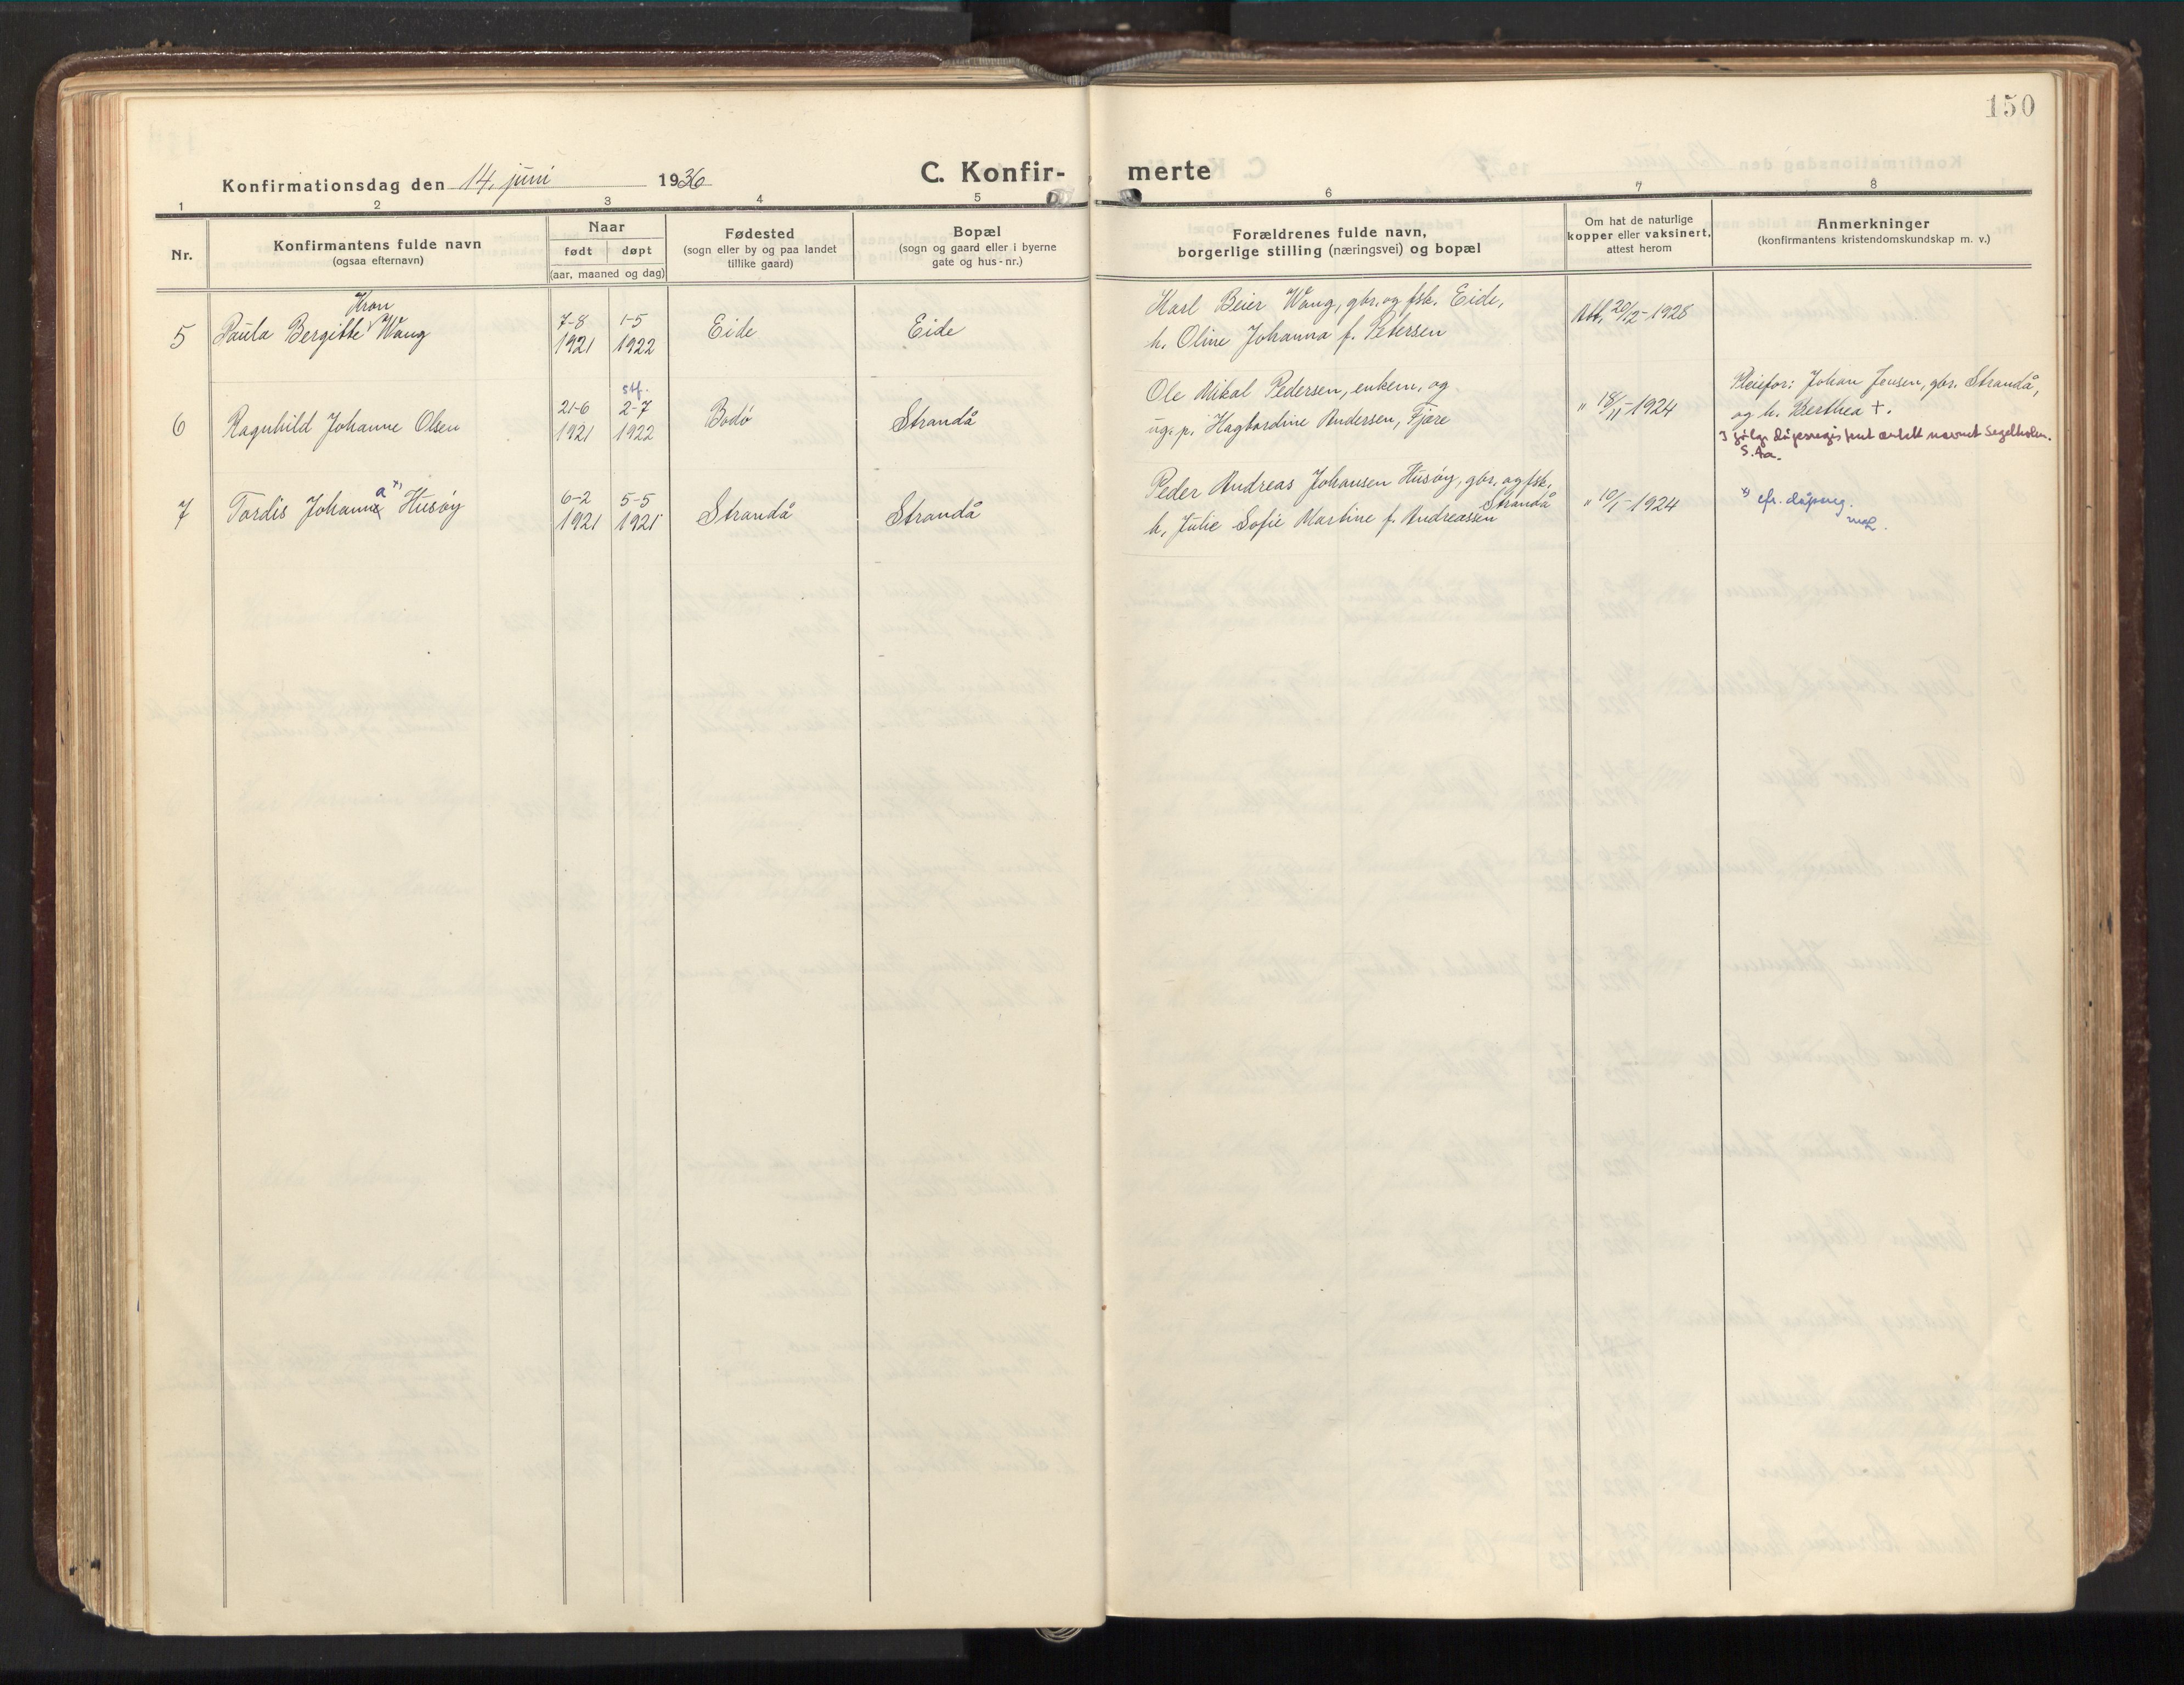 150
Konfirmationsdag den 14. juni 1936
C. Konfir-
merte
1 2 3 4 5 6 7 8
Nr.
Konfirmantens fulde navn
(ogsaa efternavn)
Naar
født døpt
(aar, maaned og dag)
Fødested
(sogn eller by og paa landet
tillike gaard)
Bopæl
(sogn og gaard eller i byerne
gate og hus-nr.)
Forældrenes fulde navn,
borgerlige stilling (næringsvei) og bopæl
Om hat de naturlige
kopper eller vaksinert,
attest herom
Anmerkninger
(konfirmantens kristendomskundskap m. v.)
Kran
5 Paula Bergitte Wang
7-8 1921
1-5 1922
Eide
Eide
Karl Beier Wang, gbr. og fsk. Eide,
h. Oline Johanna f. Petersen
Att. 20/12-1928
6 Ragnhild Johanne Olsen
21-6 1921
stf.
2-7 1922
Bodø
Strandå
Ole Mikal Pedersen, enkem, og
ug. p. Hagbardine Andersen, Fjære
" 18/11-1924
Pleiefor: Johan Jensen, gbr. Strandå,
og h. Berthea +.
I følge dåpsregistret antatt navnet Segelholm.
S.Aa.
7 Tordis Johanne a x) Husøy
6-2 1921
5-5 1921
Strandå
Strandå
Peder Andreas Johansen Husøy, gbr. og fsk.,
Strandå
h. Julie Sofie Martine f. Andreassen
" 10/1-1924
x) cfr. dåpsreg.